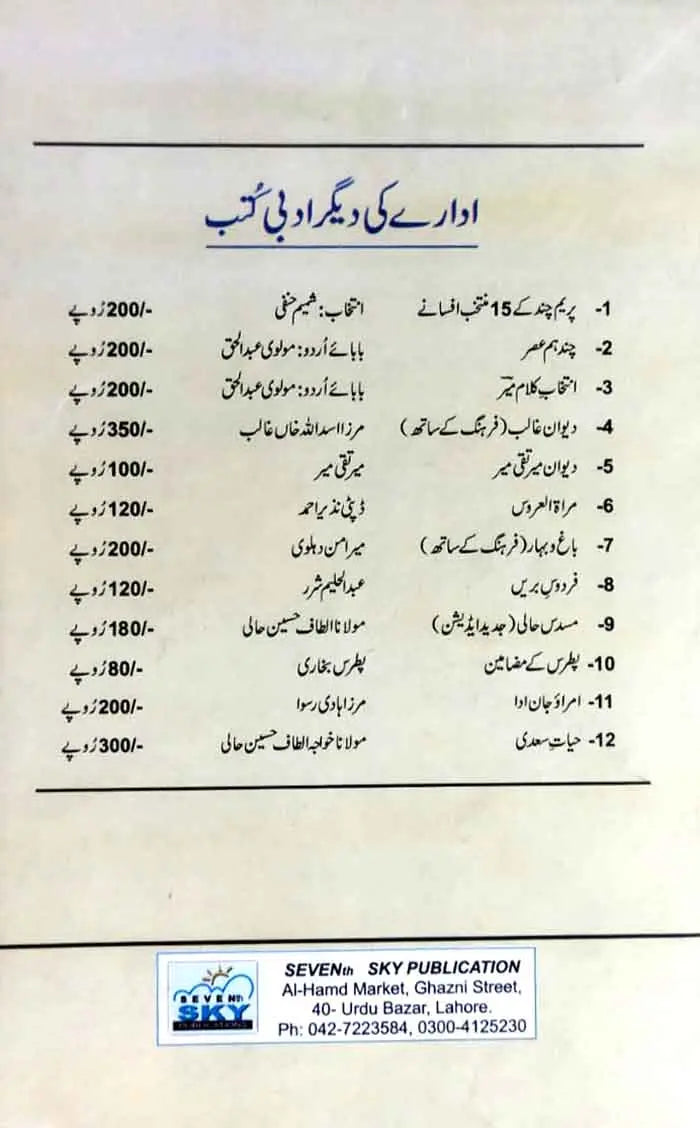 ادارے کی دیگر ادبی کُتب
1- پریم چند کے 15 منتخب افسانے انتخاب: شمیم حنفی 200/- رُوپے
2- چند ہم عصر بابائے اُردو: مولوی عبدالحق 200/- رُوپے
3- انتخابِ کلام میرؔ بابائے اُردو: مولوی عبدالحق 200/- رُوپے
4- دیوان غالب (فرہنگ کے ساتھ) مرزا اسد اللہ خاں غالب 350/- رُوپے
5- دیوان میر تقی میر میر تقی میر 100/- رُوپے
6- مراۃ العروس ڈپٹی نذیر احمد 120/- رُوپے
7- باغ و بہار (فرہنگ کے ساتھ) میر امن دہلوی 200/- رُوپے
8- فردوسِ بریں عبدالحلیم شرر 120/- رُوپے
9- مسدس حالی (جدید ایڈیشن) مولانا الطاف حسین حالی 180/- رُوپے
10- پطرس کے مضامین پطرس بخاری 80/- رُوپے
11- امراؤ جان ادا مرزا ہادی رسوا 200/- رُوپے
12- حیاتِ سعدی مولانا خواجہ الطاف حسین حالی 300/- رُوپے
SEVENth
SKY
PUBLICATIONS
SEVENth SKY PUBLICATION
Al-Hamd Market, Ghazni Street,
40- Urdu Bazar, Lahore.
Ph: 042-7223584, 0300-4125230